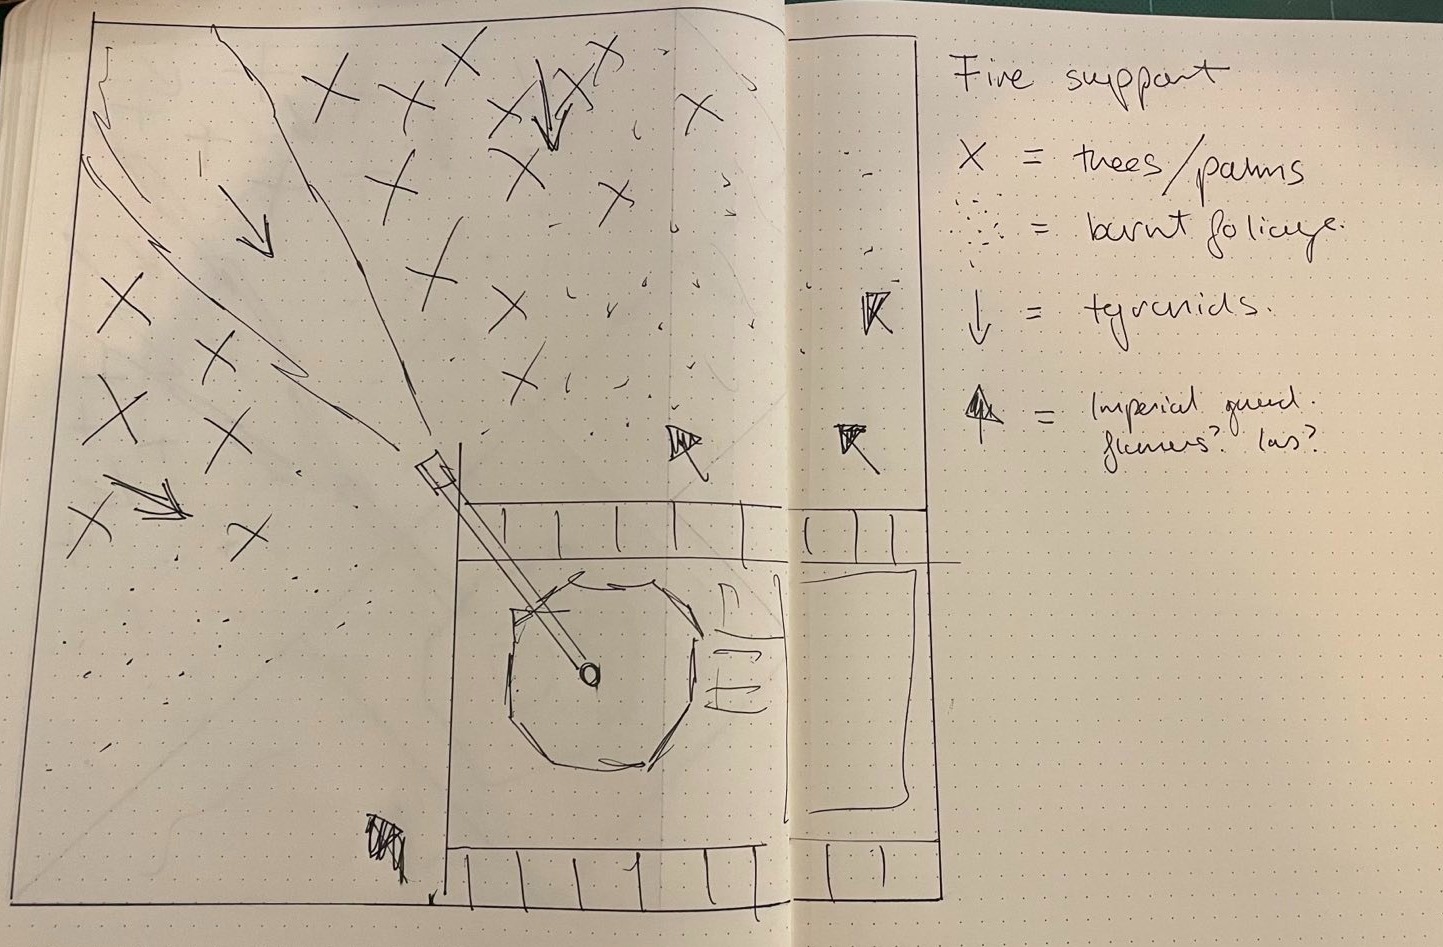 Fire support
X = trees/palms
= burnt foliage.
↓ = tyranids.
= Imperial guard.
flamers? las?